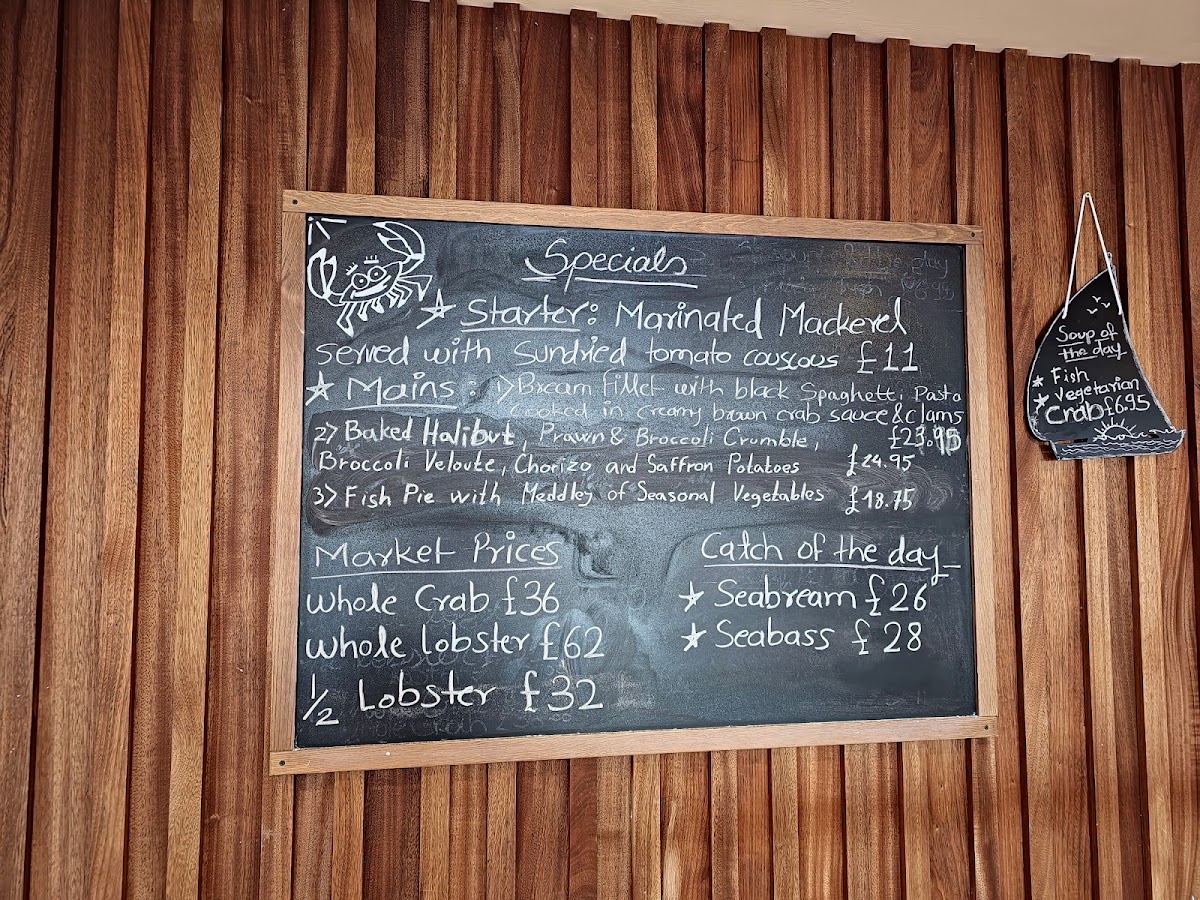 Specials
Starter: Marinated Mackerel
served with Sundried tomato couscous £11
Mains: 1> Bream fillet with black Spaghetti Pasta
cooked in creamy brown crab sauce & clams
£23.95
2> Baked Halibut, Prawn & Broccoli Crumble,
Broccoli Veloute, Chorizo and Saffron Potatoes £24.95
3> Fish Pie with Meddley of Seasonal Vegetables £18.75
Market Prices
whole Crab £36
whole lobster £62
1/2 Lobster £32
Catch of the day
Seabream £26
Seabass £28
Soup of
the day
Fish
Vegetarian
Crab £6.95